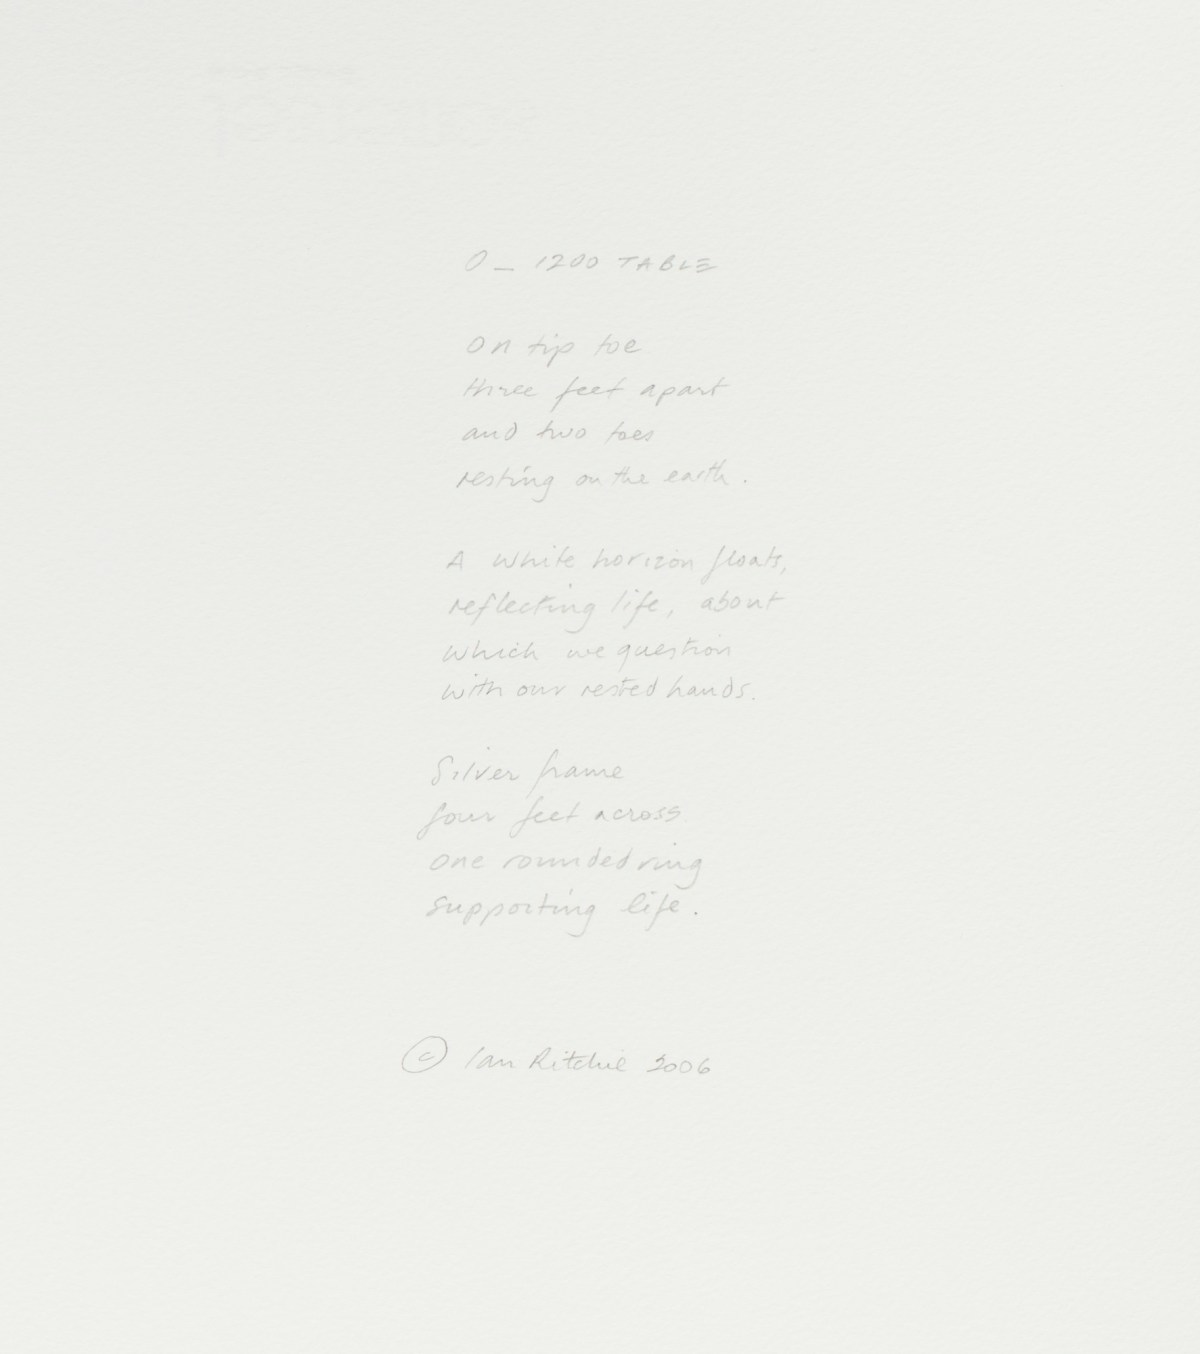 0_ 1200 TABLE
On tip toe
three feet apart
and two toes
resting on the earth.
A white horizon floats,
reflecting life, about
which we question
with our rested hands.
Silver frame
four feet across
one rounded ring
supporting life.
© Ian Ritchie 2006